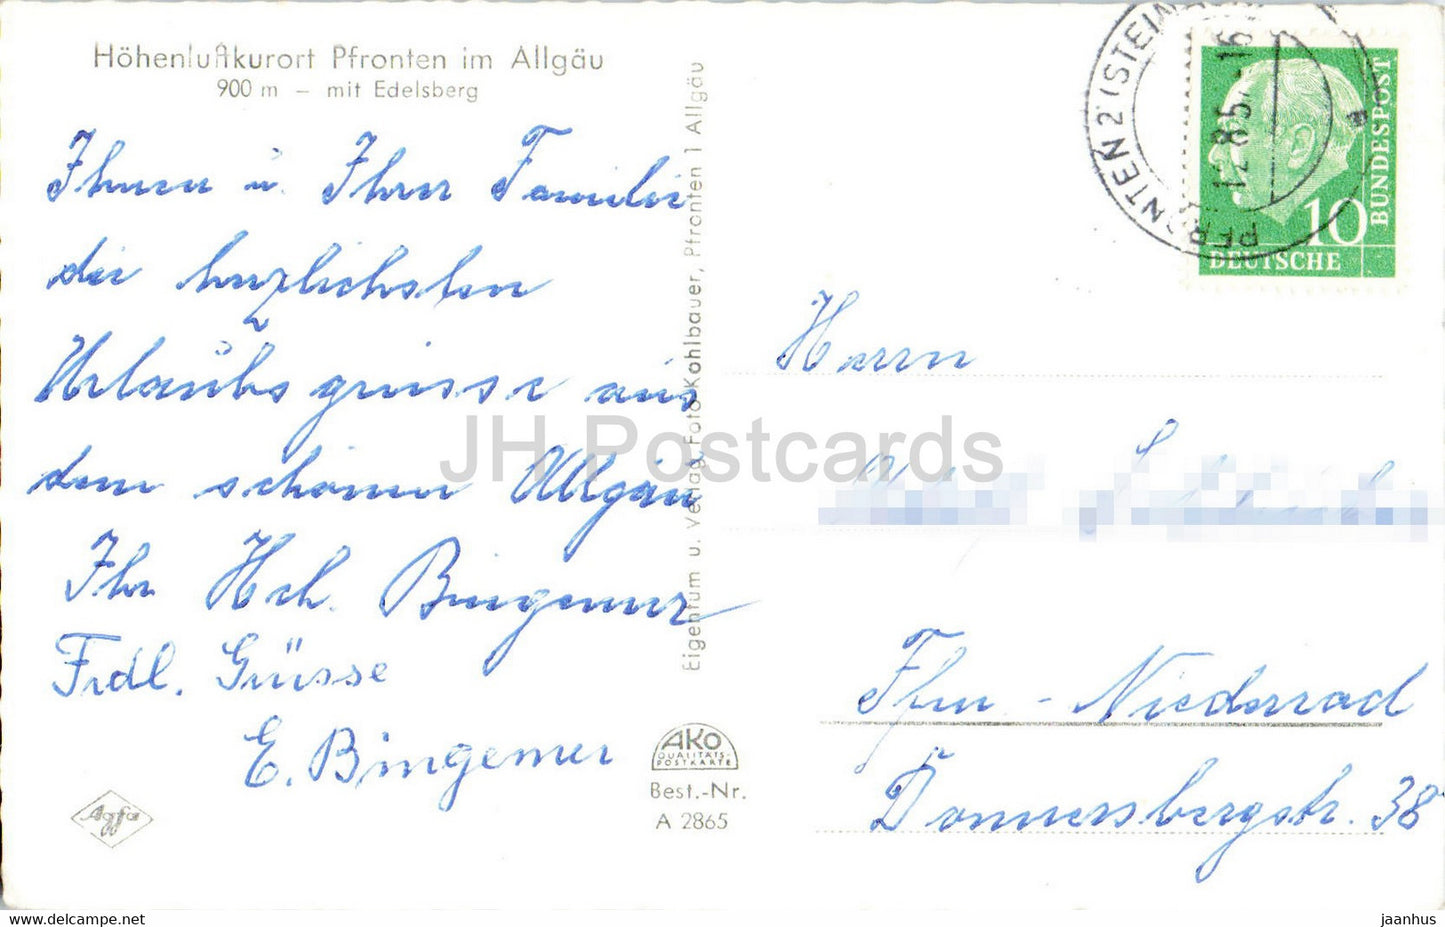 Höhenluftkurort Pfronten im Allgäu
900 m – mit Edelsberg
Ihnen u. Ihrer Familie
die herzlichsten
Urlaubsgrüsse aus
dem schönen Allgäu
Ihr Hch. Bingemer
Frdl. Grüsse
E. Bingemer
Agfa
Eigentum u. Verlag Foto Kohlbauer, Pfronten 1 Allgäu
AKO
QUALITÄTS-
POSTKARTE
Best.-Nr.
A 2865
PFRONTEN 2 (STEINACH)
12.8.57.-16
DEUTSCHE
BUNDESPOST
10
Herrn
Ffm - Niederrad
Donnersbergstr. 38
JH Postcards
www.delcampe.net
jaanhus